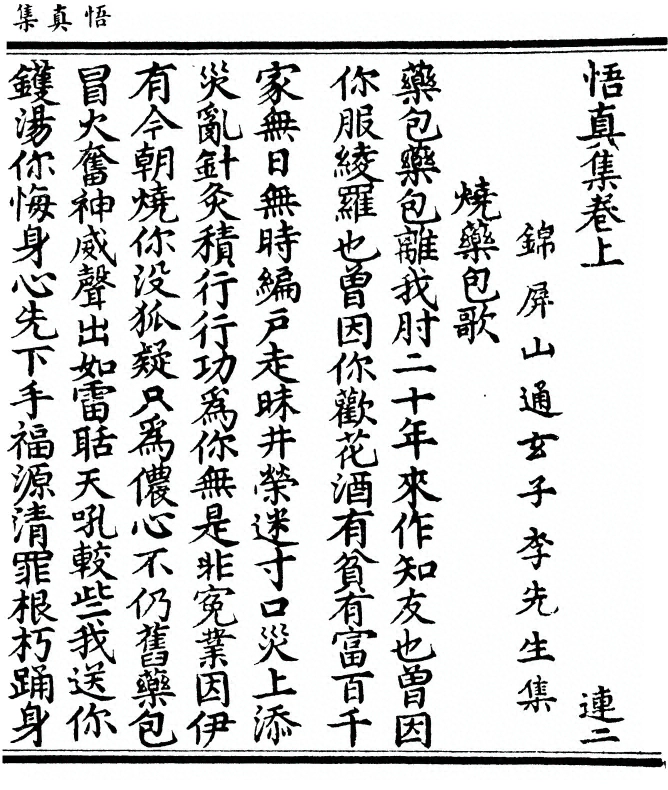 悟真集
悟真集卷上 連二
錦屏山通玄子李先生集
燒藥包歌
藥包藥包離我肘二十年來作知友也曾因
你服綾羅也曾因你歡花酒有貧有富百千
家無日無時編戶走昧井滎迷寸口災上添
災亂針灸積行行功爲你無是非冤業因伊
有今朝燒你没狐疑只爲儂心不仍舊藥包
冒火奮神威聲出如雷聒天吼較些我送你
鑊湯你悔身心先下手福源清罪根朽踊身